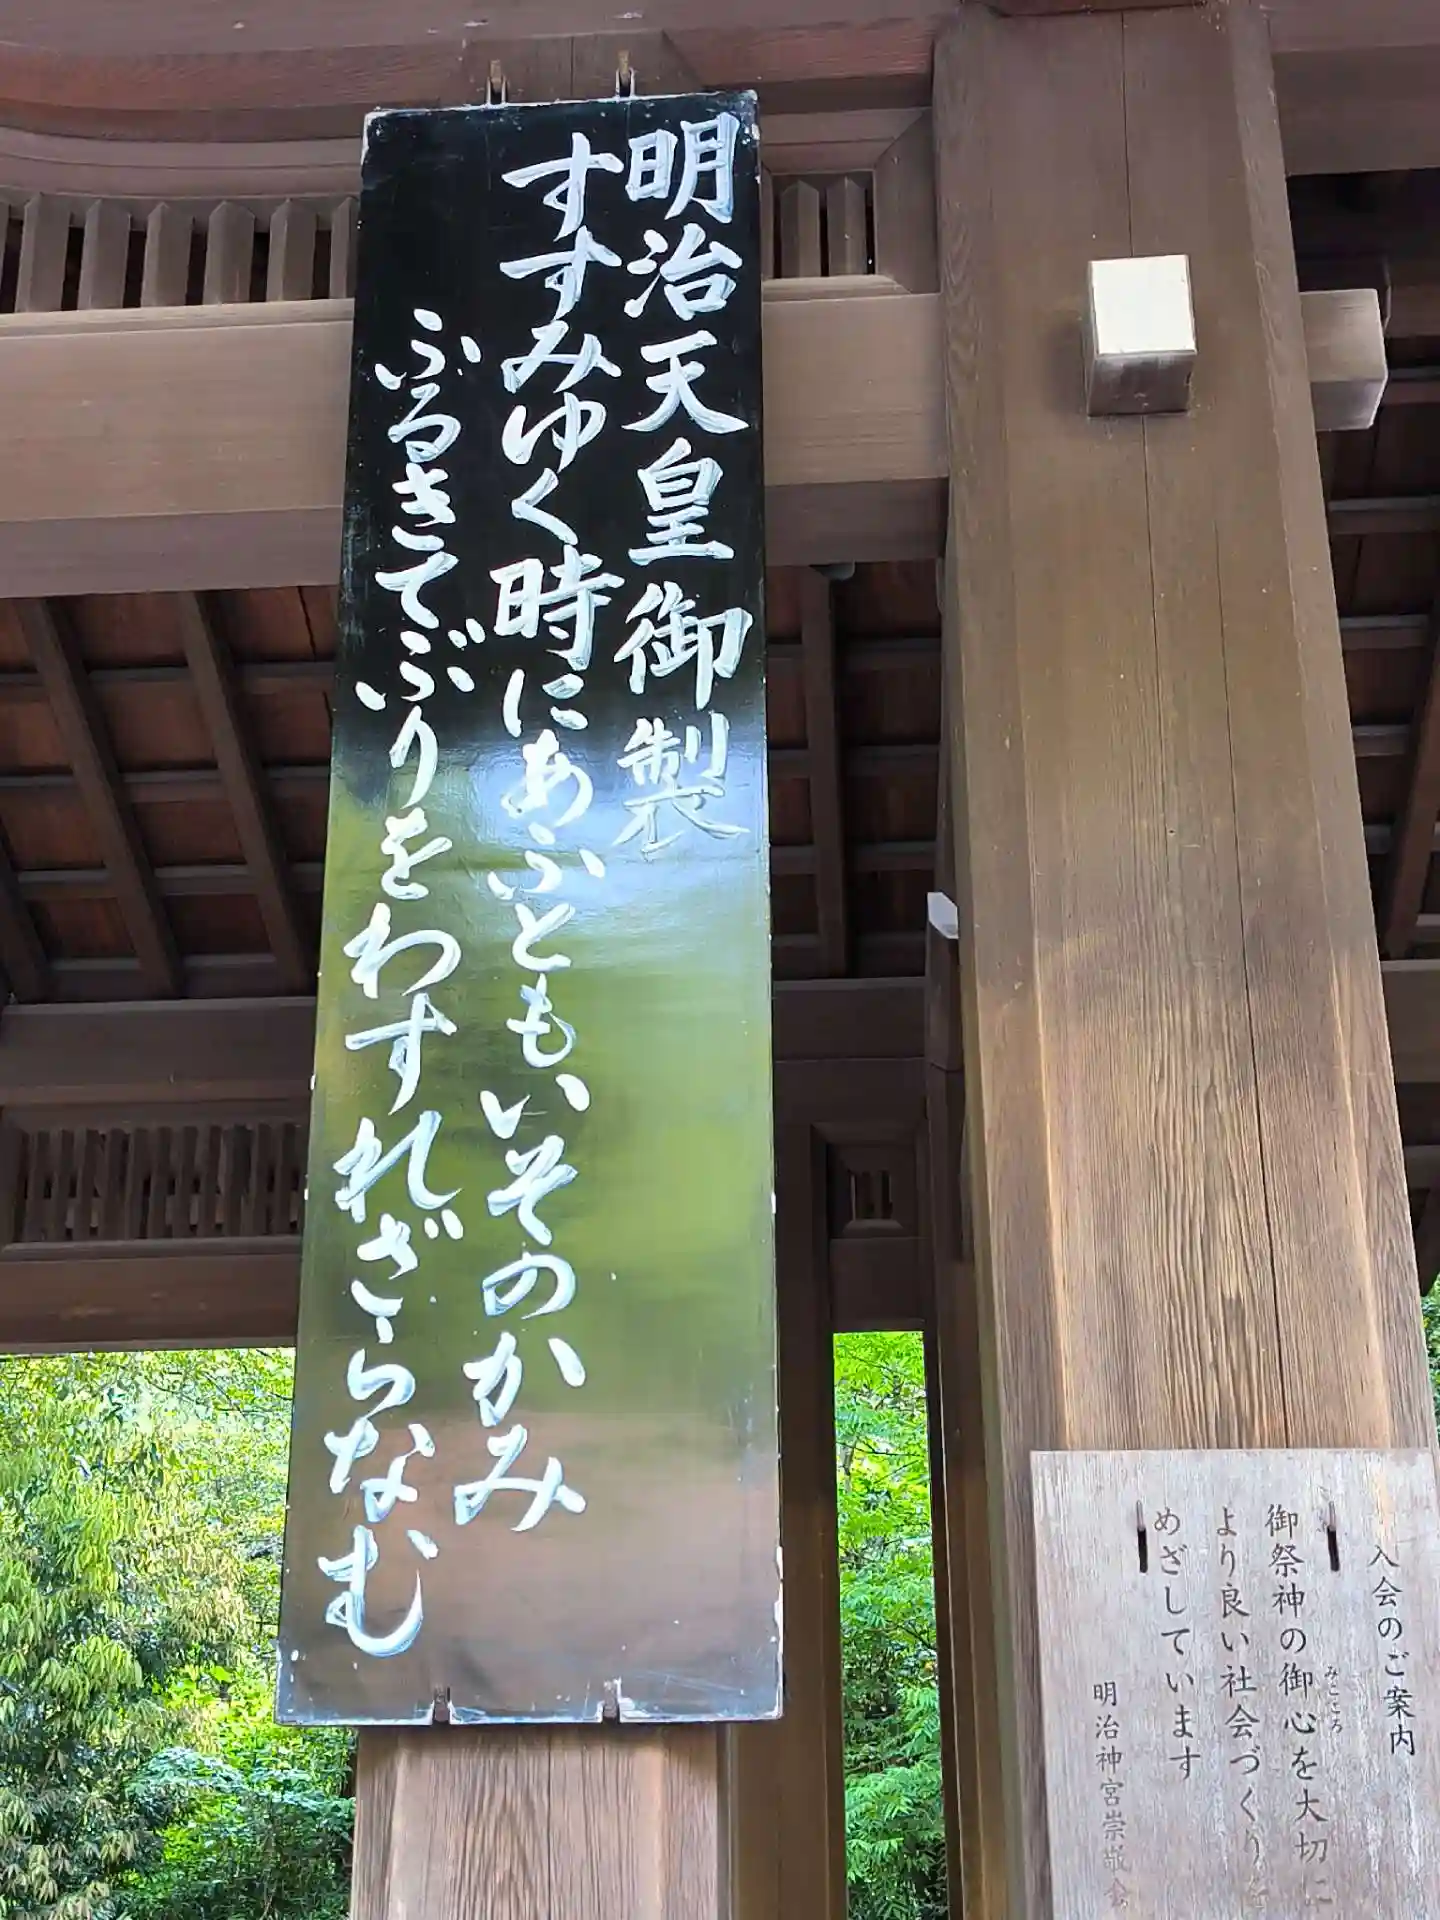 明治天皇御製
すすみゆく時にあふともいそのかみ
ふるきてぶりをわすれざらなむ
入会のご案内
御祭神の御心を大切に
みこころ
より良い社会づくりを
めざしています
明治神宮崇敬会